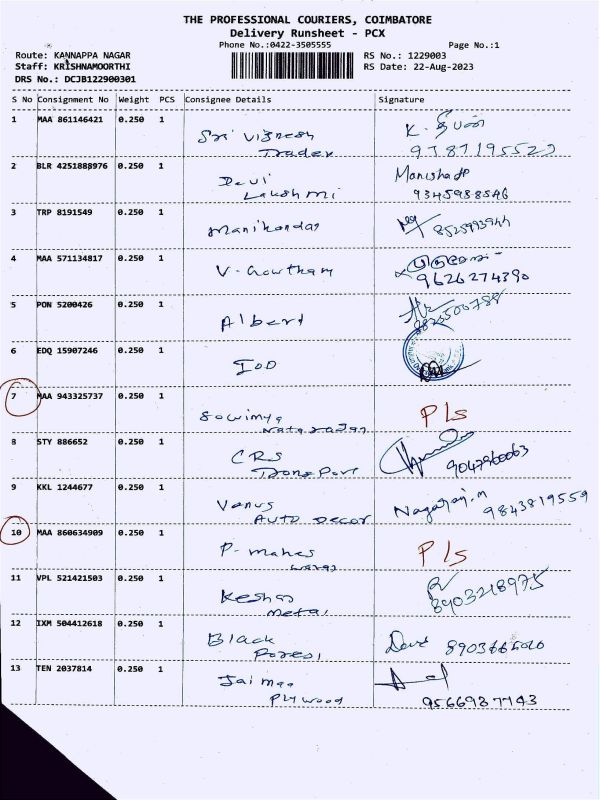 THE PROFESSIONAL COURIERS, COIMBATORE
Delivery Runsheet - PCX
Phone No.:0422-3505555 Page No.:1
Route: KANNAPPA NAGAR RS No.: 1229003
Staff: KRISHNAMOORTHI RS Date: 22-Aug-2023
DRS No.: DCJB122900301
S No Consignment No Weight PCS Consignee Details Signature
1 MAA 861146421 0.250 1
Sri Vignesh
Trader 9787195523
2 BLR 4251888976 0.250 1 Manisha
Devi
Lakshmi 9345988546
3 TRP 8191549 0.250 1
Manikandan 8525993944
4 MAA 571134817 0.250 1
V. Gowtham 9626274390
5 PON 5200426 0.250 1
Albert
6 EDQ 15907246 0.250 1
IOD
7 MAA 943325737 0.250 1
Sowmya Pls
Natarajan
8 STY 886652 0.250 1
CRS
Transport 9047960063
9 KKL 1244677 0.250 1 Nagaraj.M
Venus 9843819559
Auto Decor
10 MAA 860634909 0.250 1
P. Mahes Pls
11 VPL 521421503 0.250 1
Keshav 8903218975
Metal
12 IXM 504412618 0.250 1
Black
Forest
13 TEN 2037814 0.250 1
Jai Maa
Plywood 9566937743